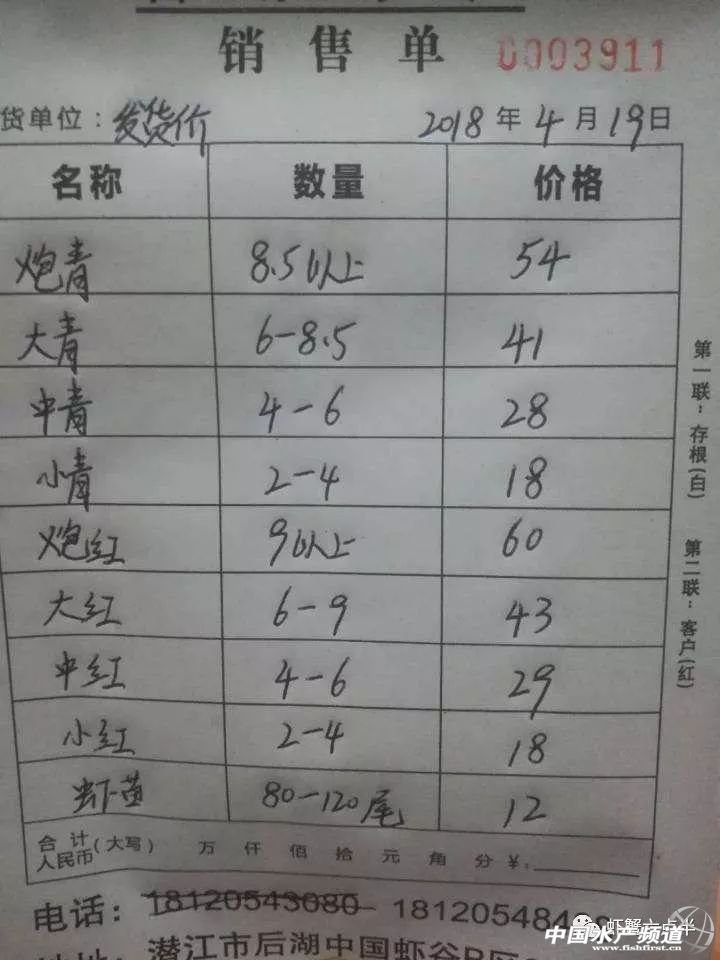 销售单 0003911
货单位：发货价 2018年4月19日
名称 数量 价格
炮青 8.5以上 54
大青 6-8.5 41
中青 4-6 28
小青 2-4 18
炮红 9以上 60
大红 6-9 43
中红 4-6 29
小红 2-4 18
虾苗 80-120尾 12
合计人民币(大写) 万 仟 佰 拾 元 角 分 ¥：
第一联：存根(白)
第二联：客户(红)
电话：18120543080 181205484
潜江市后湖中国虾谷B区
虾蟹六点半
中国水产频道
www.fishfirst.cn